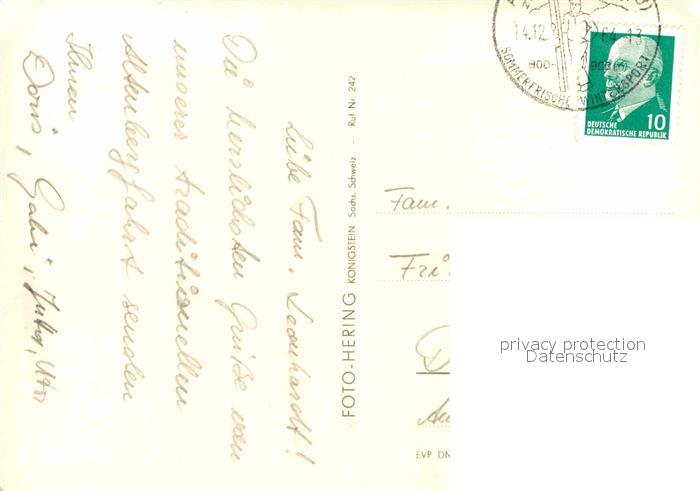 Liebe Fam. Leonhardt!
Die herzlichsten Grüße von
unserer traditionellen
Altenbergfahrt senden
Ihnen
Doris, Gabi, Jutta,
FOTO-HERING KÖNIGSTEIN Sächs. Schweiz - Ruf Nr. 242
14.12. 64.-13
800- 900 m
SOMMERFRISCHE WINTERSPORT
10
DEUTSCHE
DEMOKRATISCHE REPUBLIK
Fam.
Fri
D
EVP DM
privacy protection
Datenschutz